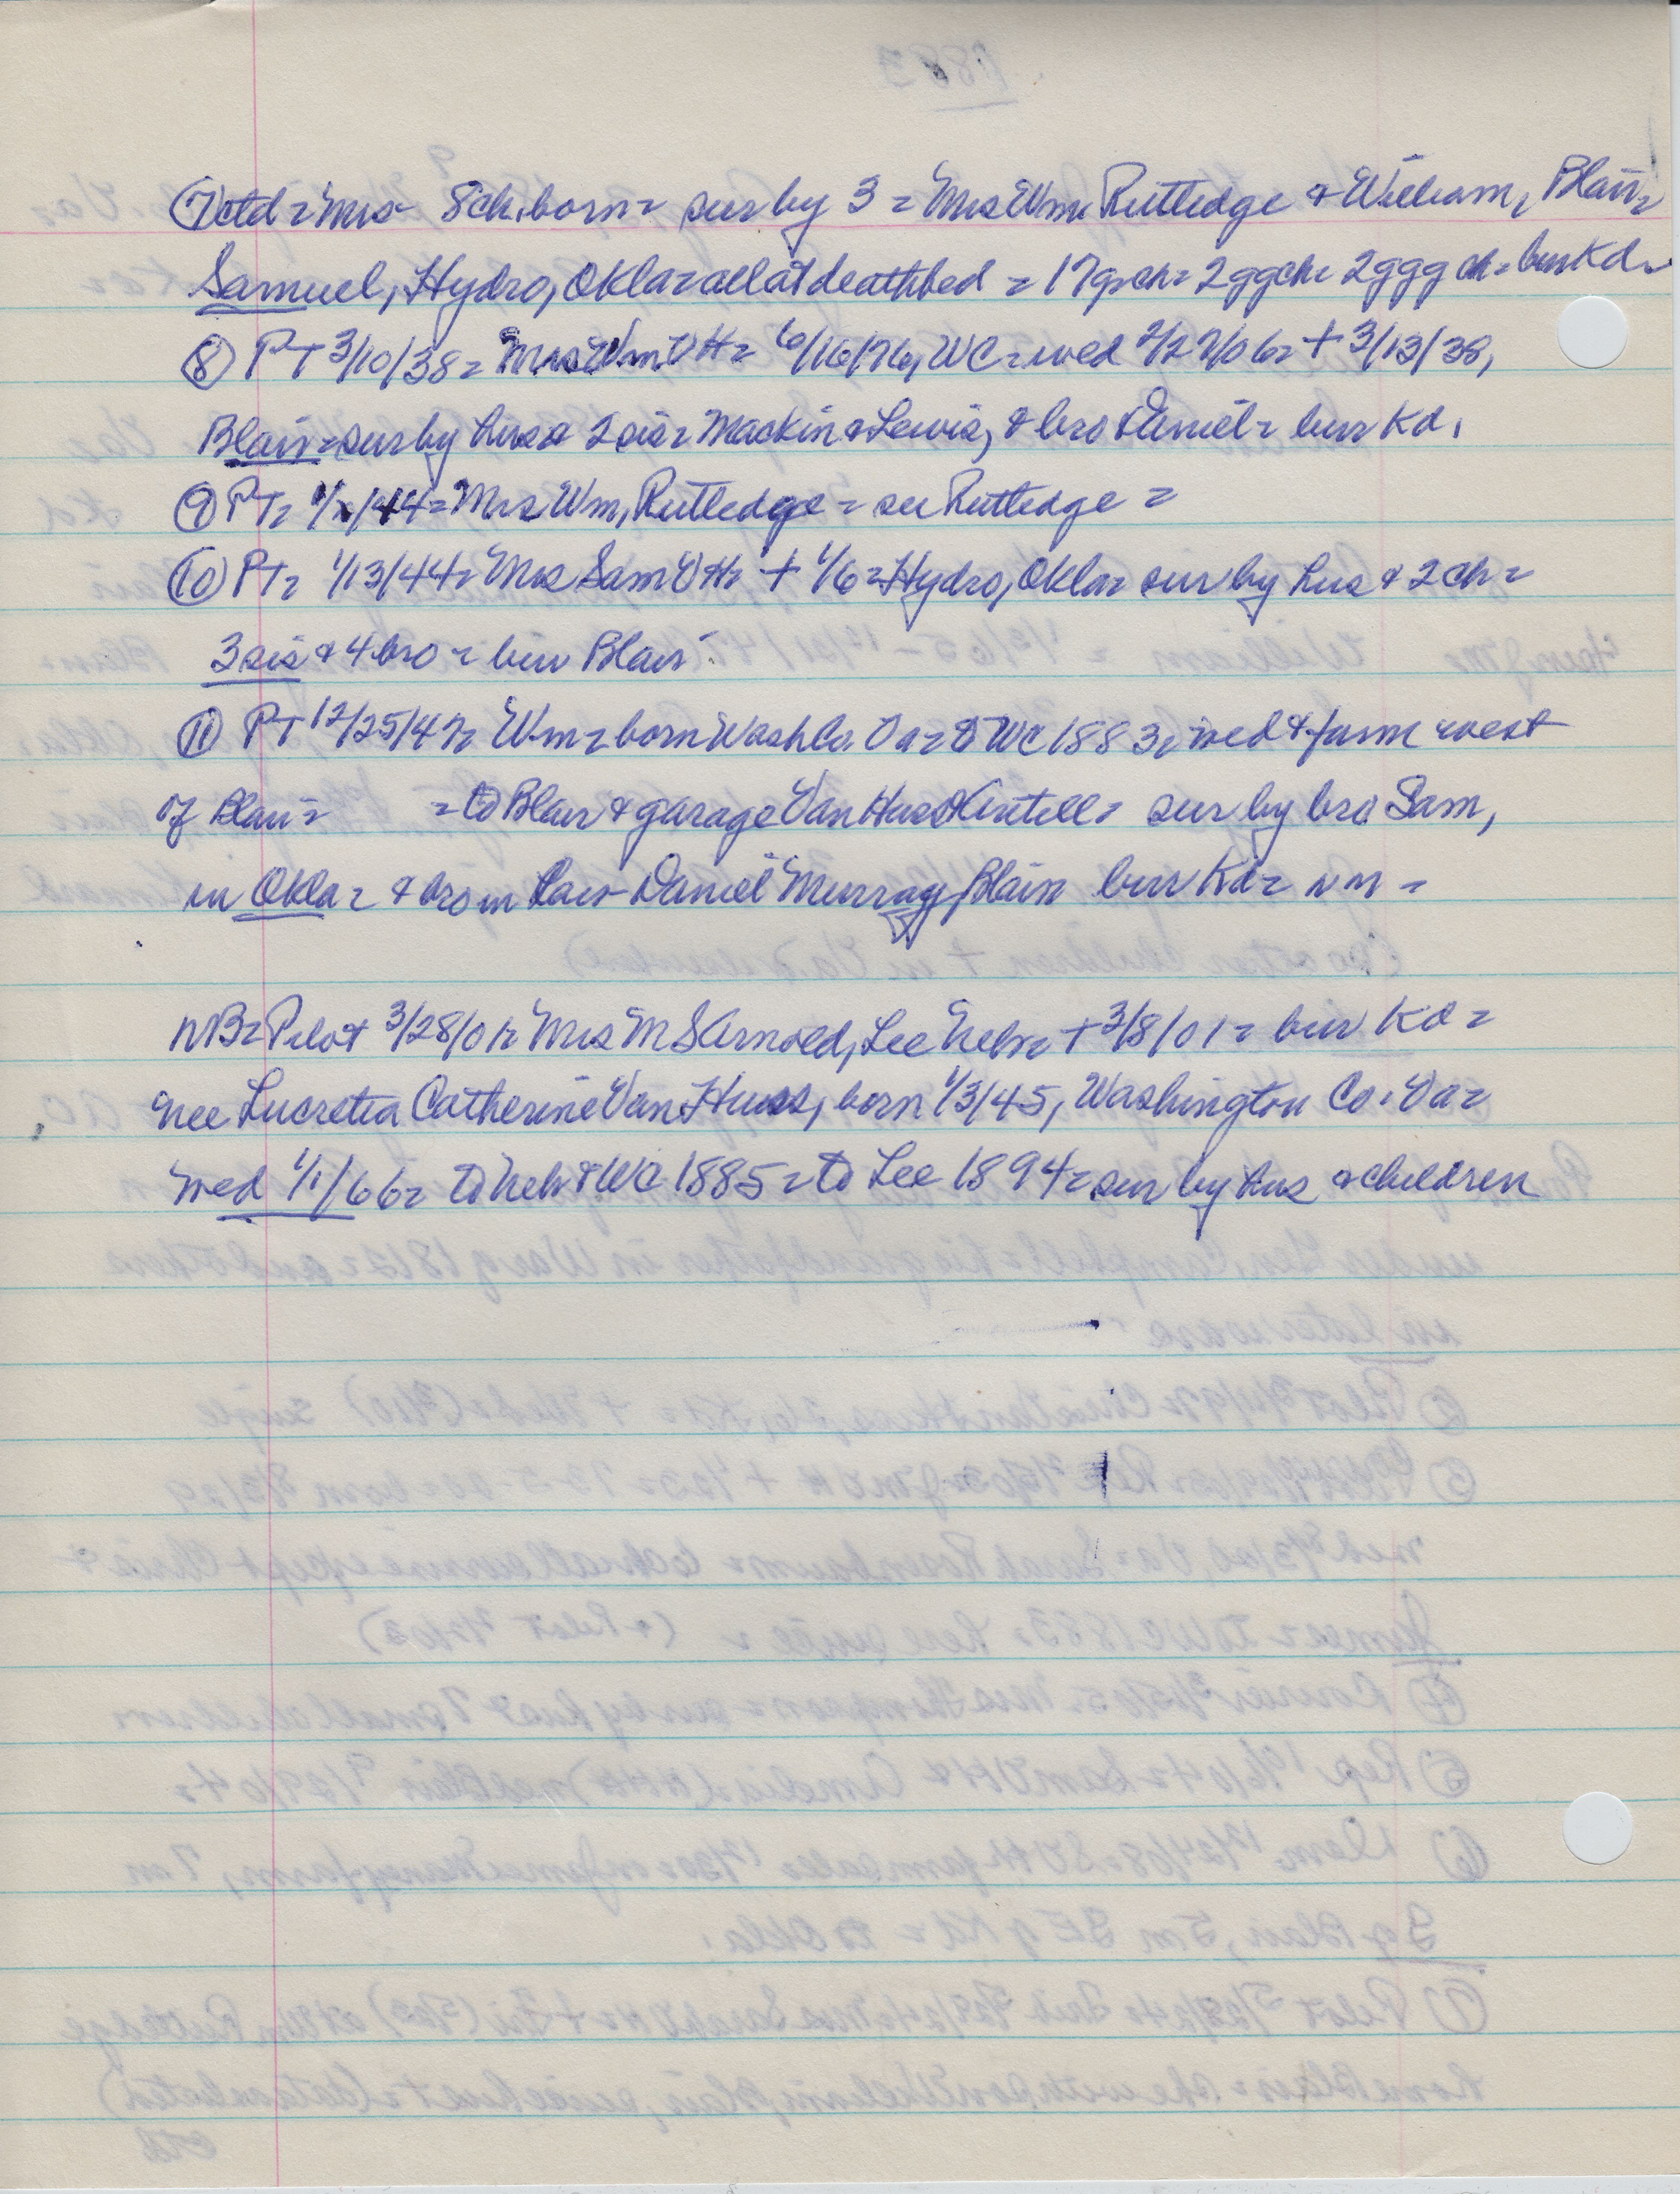 ⑦ ctd = Mrs - 8 ch. born = sur by 3 = Mrs Wm. Rutledge & William, Blair =
Samuel, Hydro, Okla = all at deathbed = 17 grch = 2 ggch = 2 ggg ch = bur Kd =
⑧ PT 3/10/38 = Mrs Wm V H = 6/16/76, WC = wed 2/22/06 = + 3/13/38,
Blair = sur by hus & 2 sis = Mackin & Lewis, & bro Daniel = bur Kd.
⑨ PT = 1/ /44 = Mrs Wm, Rutledge = see Rutledge =
⑩ PT = 1/13/44 = Mrs Sam V H = + 1/6 = Hydro, Okla = sur by hus & 2 ch =
3 sis & 4 bro = bur Blair
⑪ PT 12/25/47 = Wm = born Wash Co. Va = to WC 1883 = wed & farm west
of Blair = = to Blair & garage Van Huss = sur by bro Sam,
in Okla = & bro in law Daniel Murray, Blair bur Kd = nm =
NB = Pilot 3/28/01 = Mrs M S Arnold, Lee Nebr = + 3/8/01 = bur Kd =
nee Lucretia Catherine Van Huss, born 1/3/45, Washington Co. Va =
wed 1/1/66 = to Neb & WC 1885 = to Lee 1894 = sur by hus & children